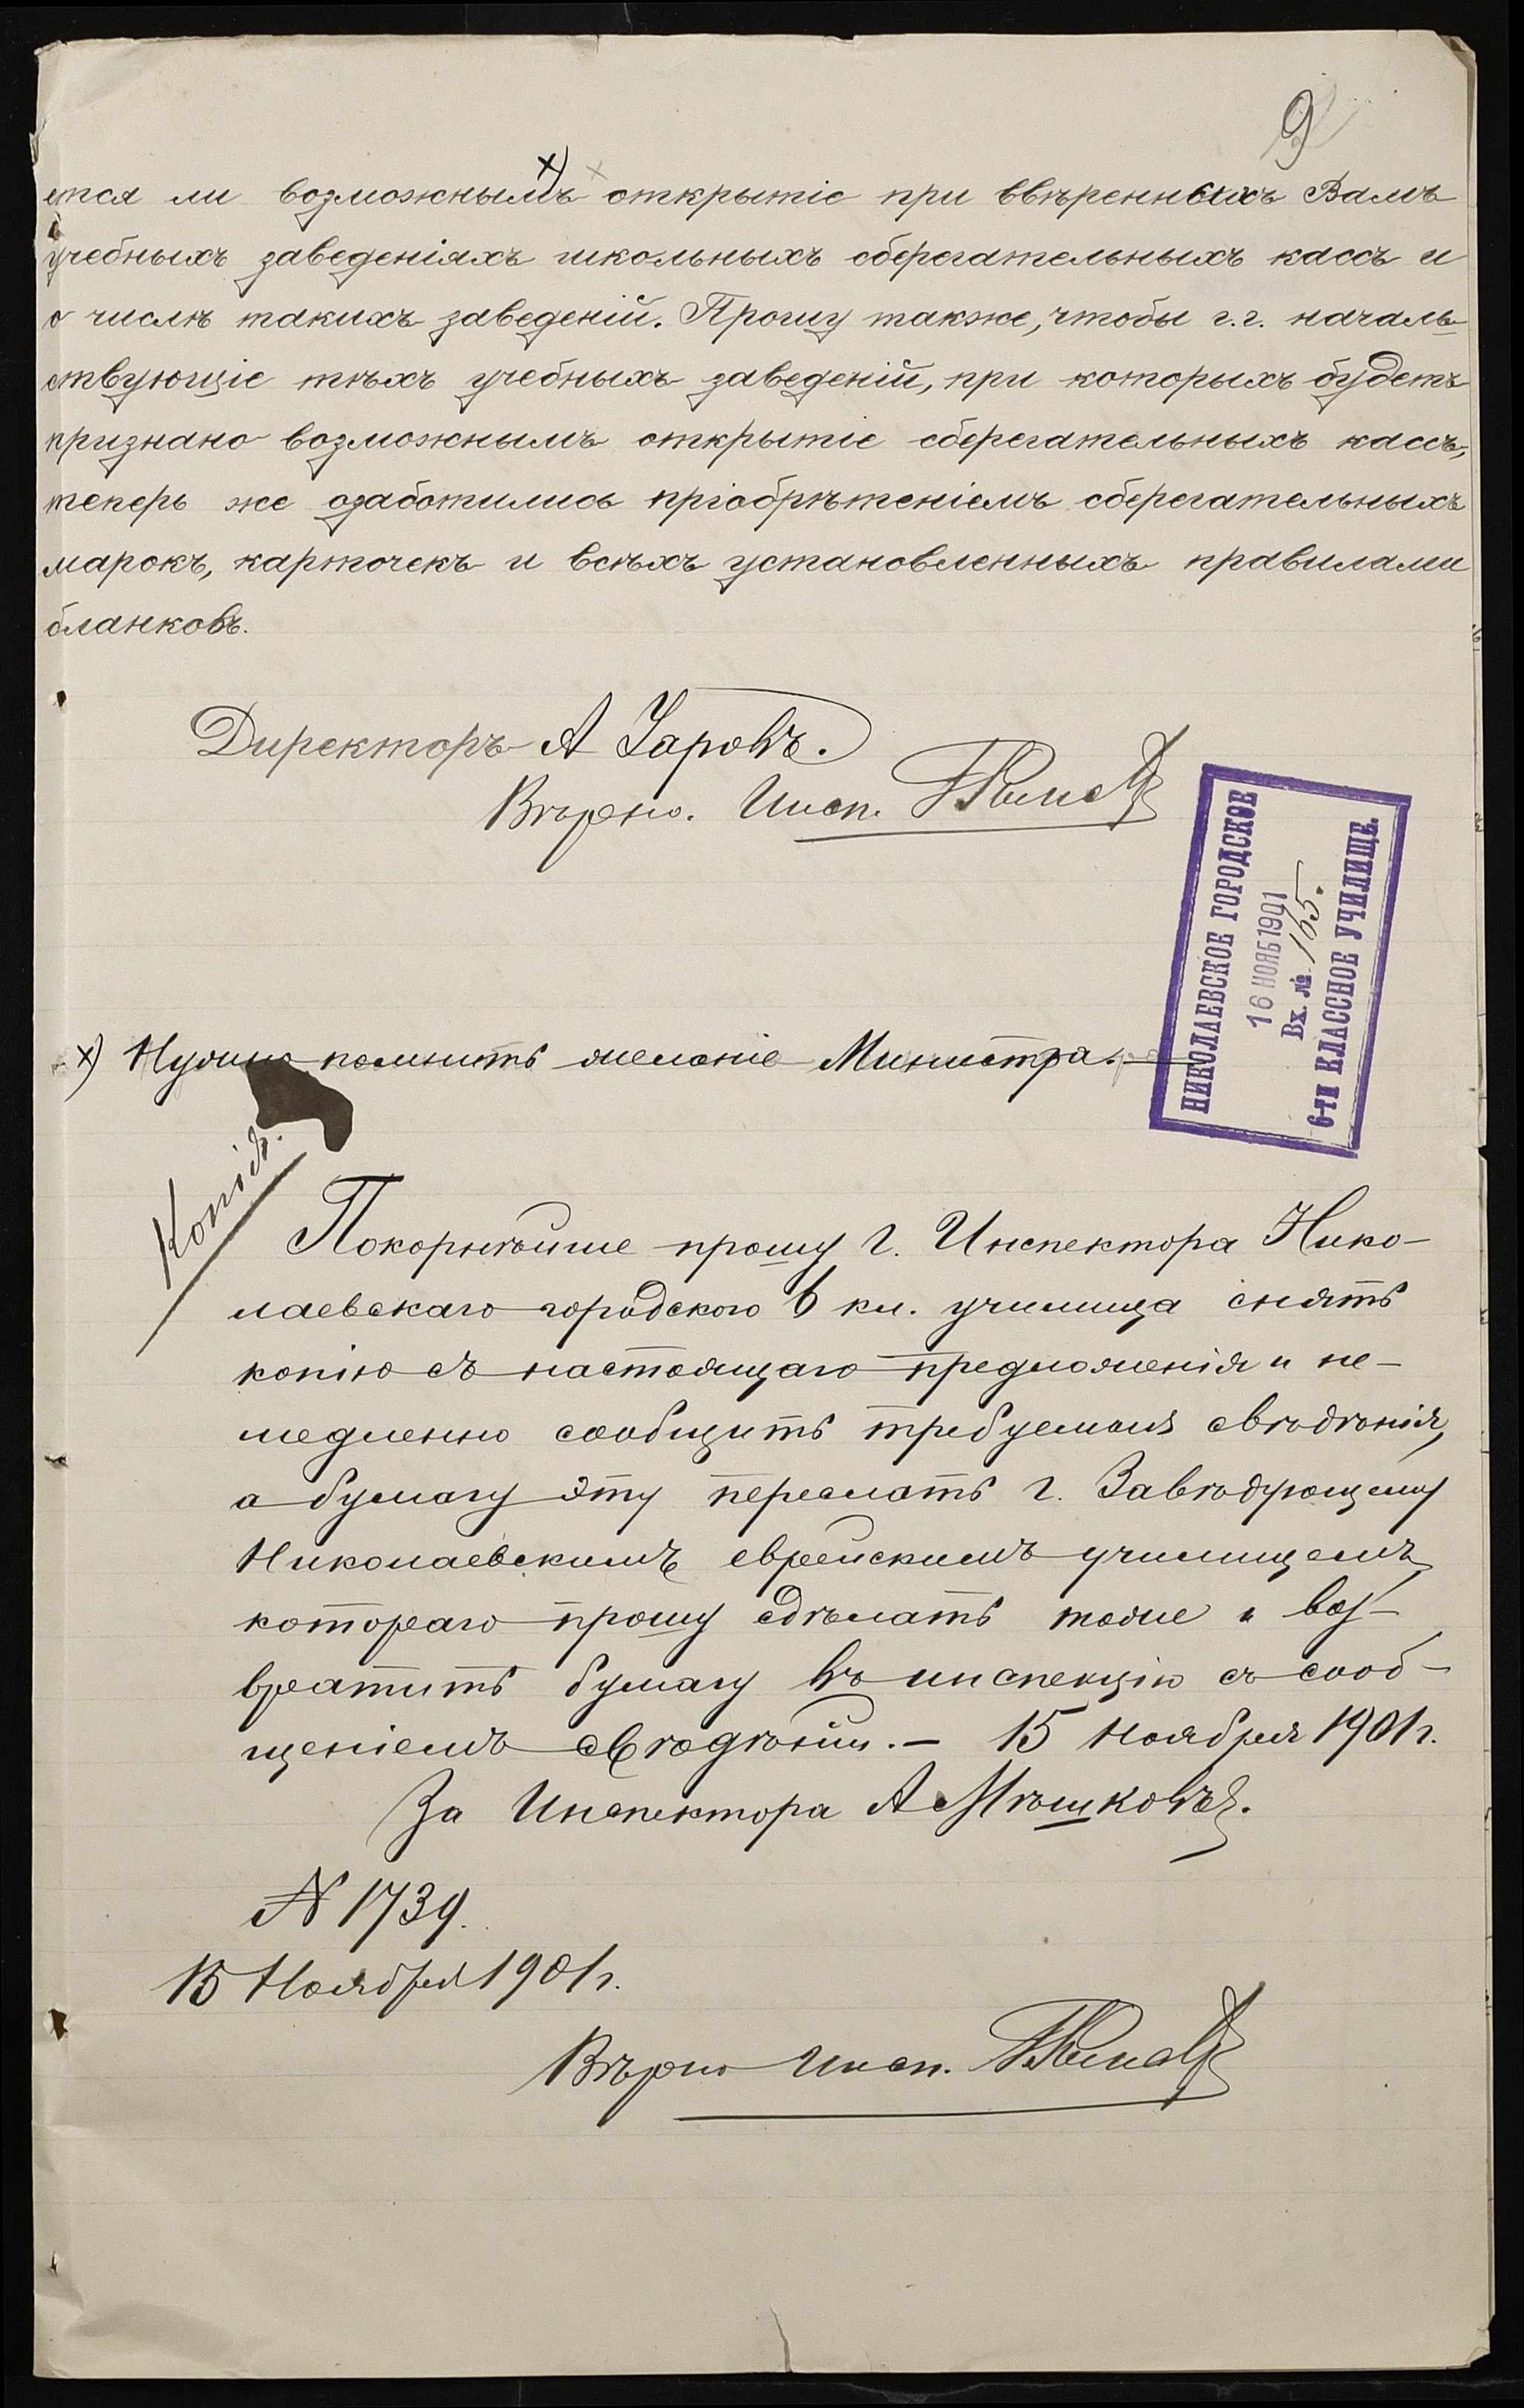 9
х)
ется ли возможнымъ открытіе при ввѣренныхъ Вамъ
учебныхъ заведеніяхъ школьныхъ сберегательныхъ кассъ и
о числѣ такихъ заведеній. Прошу также, чтобы г.г. началь-
ствующіе тѣхъ учебныхъ заведеній, при которыхъ будетъ
признано возможнымъ открытіе сберегательныхъ кассъ,
теперь же озаботились пріобрѣтеніемъ сберегательныхъ
марокъ, карточекъ и всѣхъ установленныхъ правилами
бланковъ.
Директоръ А
Вѣрно. Инсп.
НИКОЛАЕВСКОЕ ГОРОДСКОЕ
16 НОЯБ 1901
Вх. № 165.
6-ТИ КЛАССНОЕ УЧИЛИЩЕ.
х) Нужно помнить желаніе Министра.
Копія.
Покорнѣйше прошу г. Инспектора Нико-
лаевскаго городского 6 кл. училища снять
копію съ настоящаго предложенія и не-
медленно сообщить требуемыя свѣдѣнія,
а бумагу эту переслать г. Завѣдующему
Николаевскимъ еврейскимъ училищемъ,
котораго прошу сдѣлать тоже и воз-
вратить бумагу въ инспекцію съ сооб-
щеніемъ свѣдѣній. — 15 Ноября 1901 г.
За Инспектора А Мѣшковъ.
N 1739.
15 Ноября 1901 г.
Вѣрно Инсп.